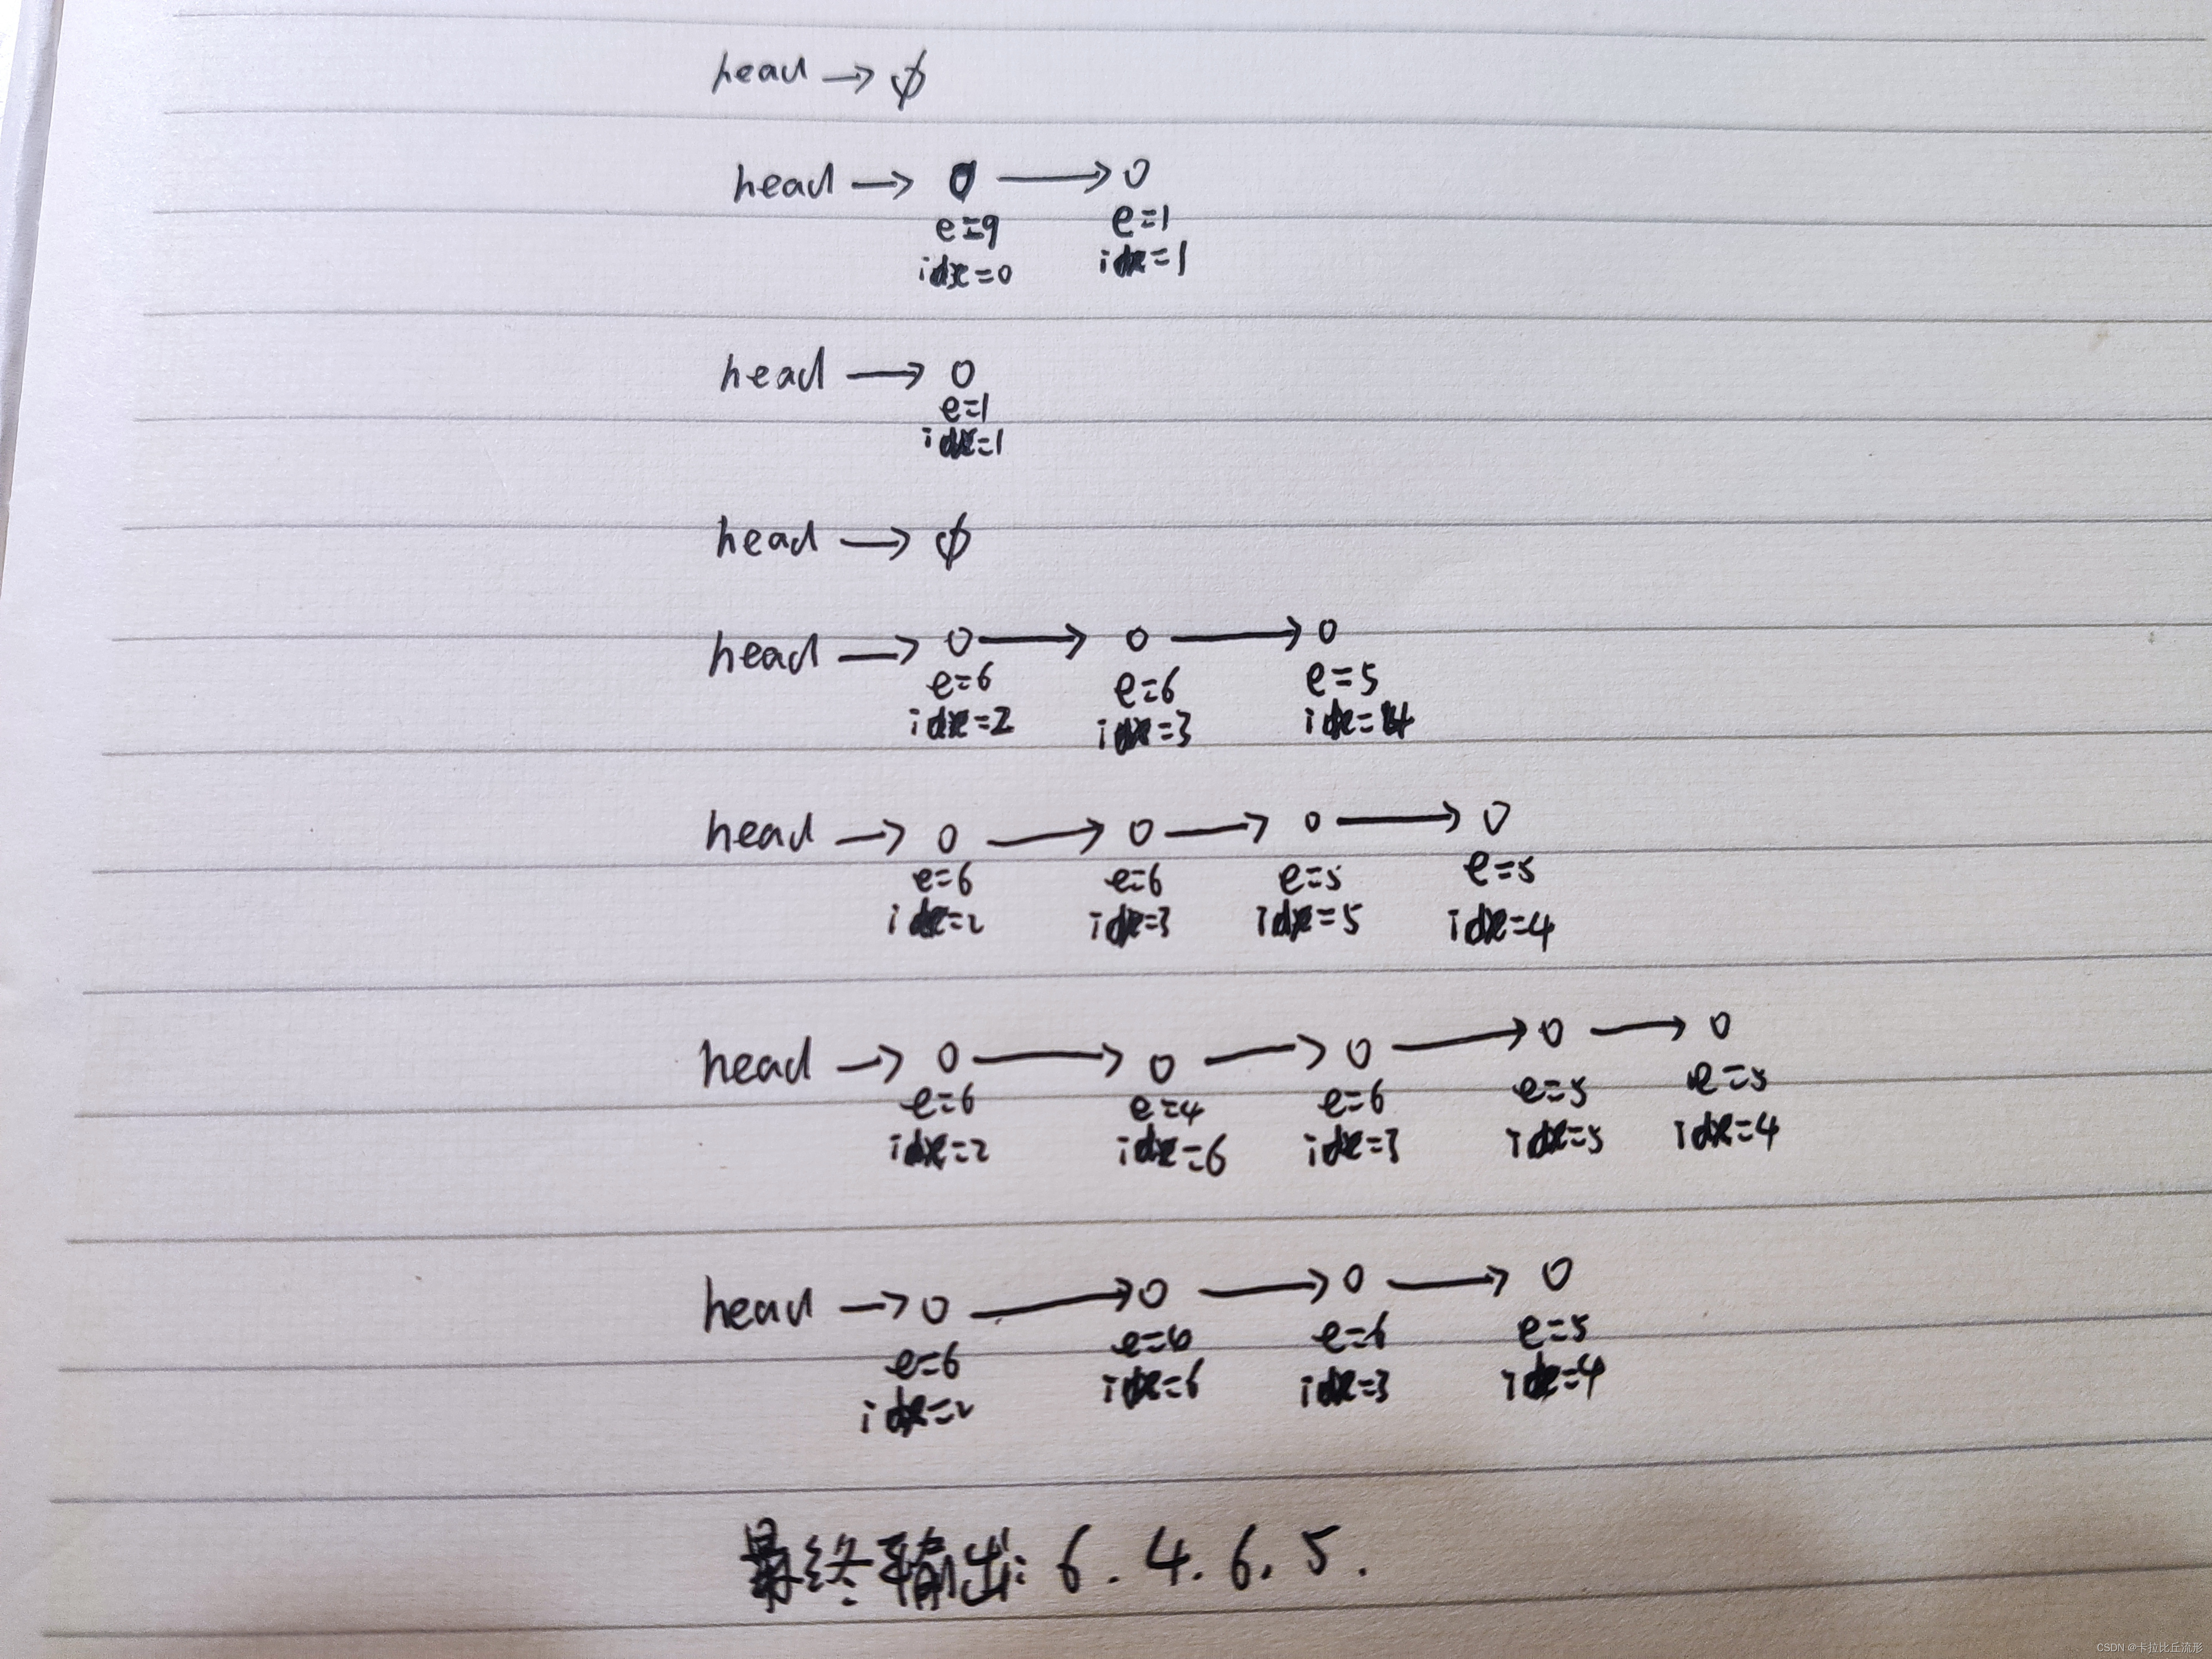 head → ϕ
head → 0 → 0
e=9 e=1
idx=0 idx=1
head → 0
e=1
idx=1
head → ϕ
head → 0 → 0 → 0
e=6 e=6 e=5
idx=2 idx=3 idx=4
head → 0 → 0 → 0 → 0
e=6 e=6 e=5 e=5
idx=2 idx=3 idx=5 idx=4
head → 0 → 0 → 0 → 0 → 0
e=6 e=4 e=6 e=5 e=5
idx=2 idx=6 idx=3 idx=5 idx=4
head → 0 → 0 → 0 → 0
e=6 e=6 e=6 e=5
idx=2 idx=6 idx=3 idx=4
最终输出: 6. 4. 6. 5.
CSDN @卡拉比丘流形